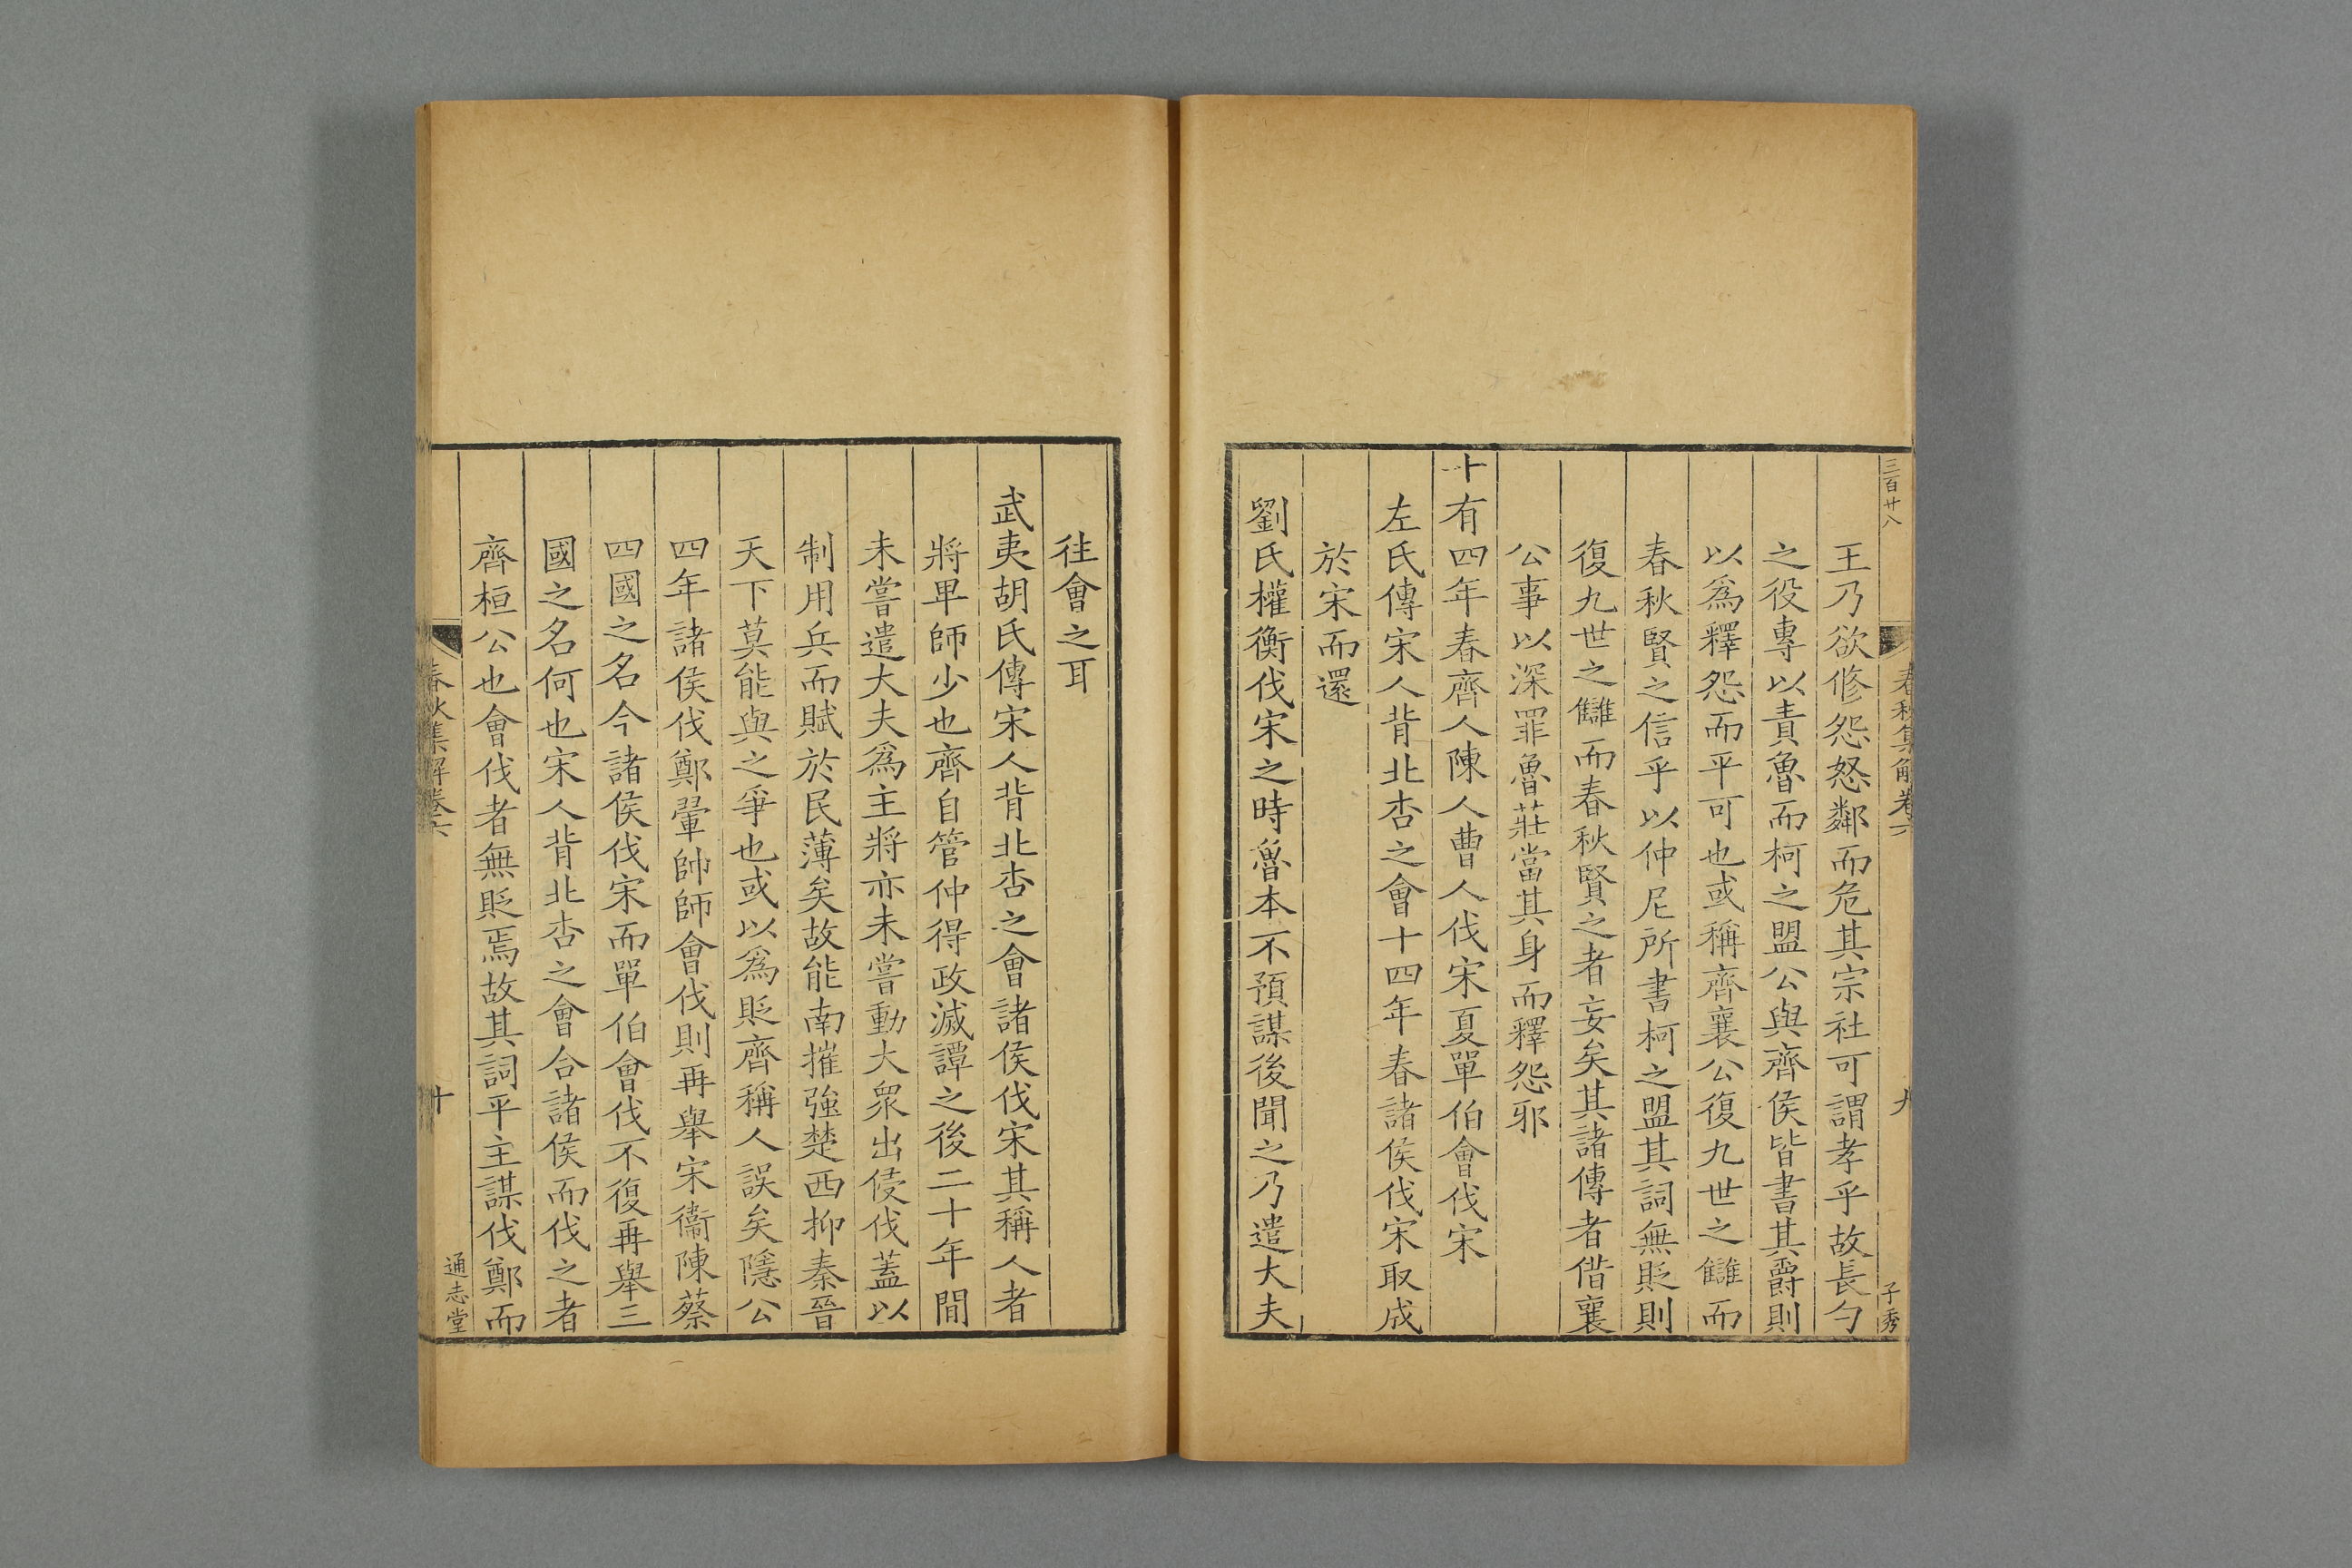 三百廿八
春秋集解卷六
九
子秀
王乃欲修怨怒鄰而危其宗社可謂孝乎故長勺
之役專以責魯而柯之盟公與齊侯皆書其爵則
以爲釋怨而平可也或稱齊襄公復九世之讎而
春秋賢之信乎以仲尼所書柯之盟其詞無貶則
復九世之讎而春秋賢之者妄矣其諸傳者借襄
公事以深罪魯莊當其身而釋怨邪
十有四年春齊人陳人曹人伐宋夏單伯會伐宋
左氏傳宋人背北杏之會十四年春諸侯伐宋取成
於宋而還
劉氏權衡伐宋之時魯本不預謀後聞之乃遣大夫
往會之耳
武夷胡氏傳宋人背北杏之會諸侯伐宋其稱人者
將卑師少也齊自管仲得政滅譚之後二十年間
未嘗遣大夫爲主將亦未嘗動大衆出侵伐蓋以
制用兵而賦於民薄矣故能南摧強楚西抑秦晉
天下莫能與之爭也或以爲貶齊稱人誤矣隱公
四年諸侯伐鄭翬帥師會伐則再舉宋衞陳蔡
四國之名今諸侯伐宋而單伯會伐不復再舉三
國之名何也宋人背北杏之會合諸侯而伐之者
齊桓公也會伐者無貶焉故其詞平主謀伐鄭而
春秋集解卷六
十
通志堂